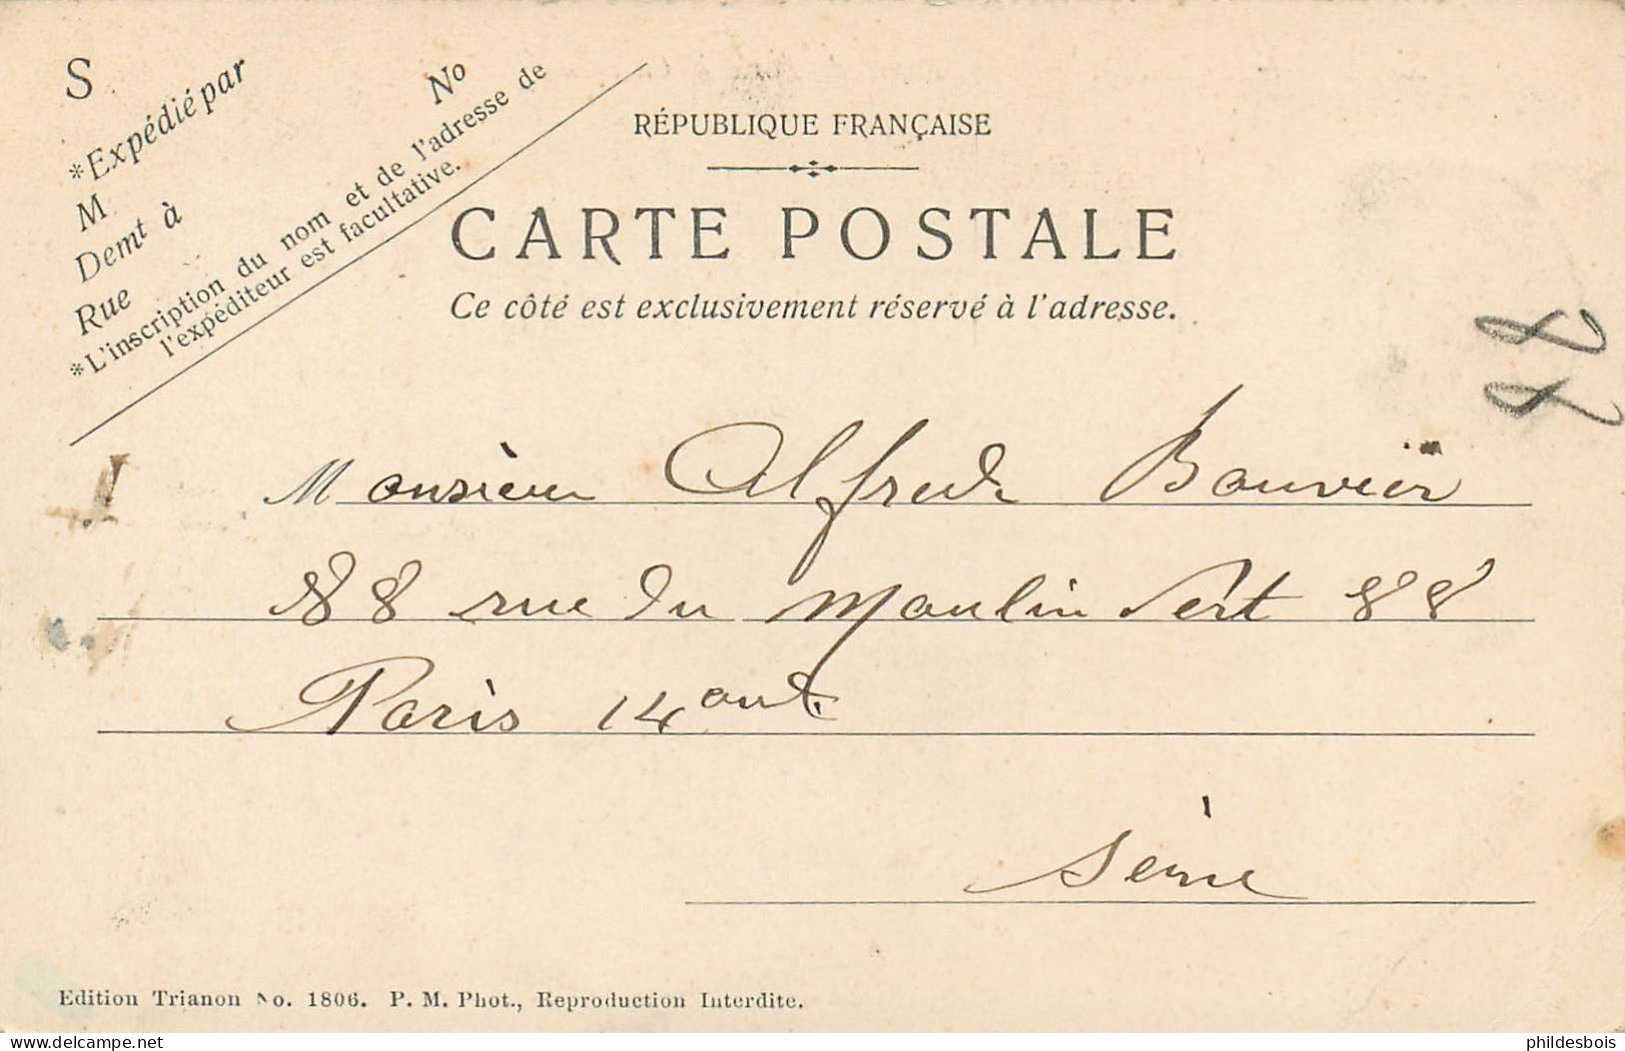 S
*Expédié par No
M
Demt à
Rue
*L'inscription du nom et de l'adresse de
l'expéditeur est facultative.
RÉPUBLIQUE FRANÇAISE
CARTE POSTALE
Ce côté est exclusivement réservé à l'adresse.
88
Monsieur Alfred Bouvier
88 rue du Moulin Vert 88
Paris 14 ont.
Seine
Edition Trianon No. 1806. P. M. Phot., Reproduction Interdite.
www.delcampe.net
phildesbois